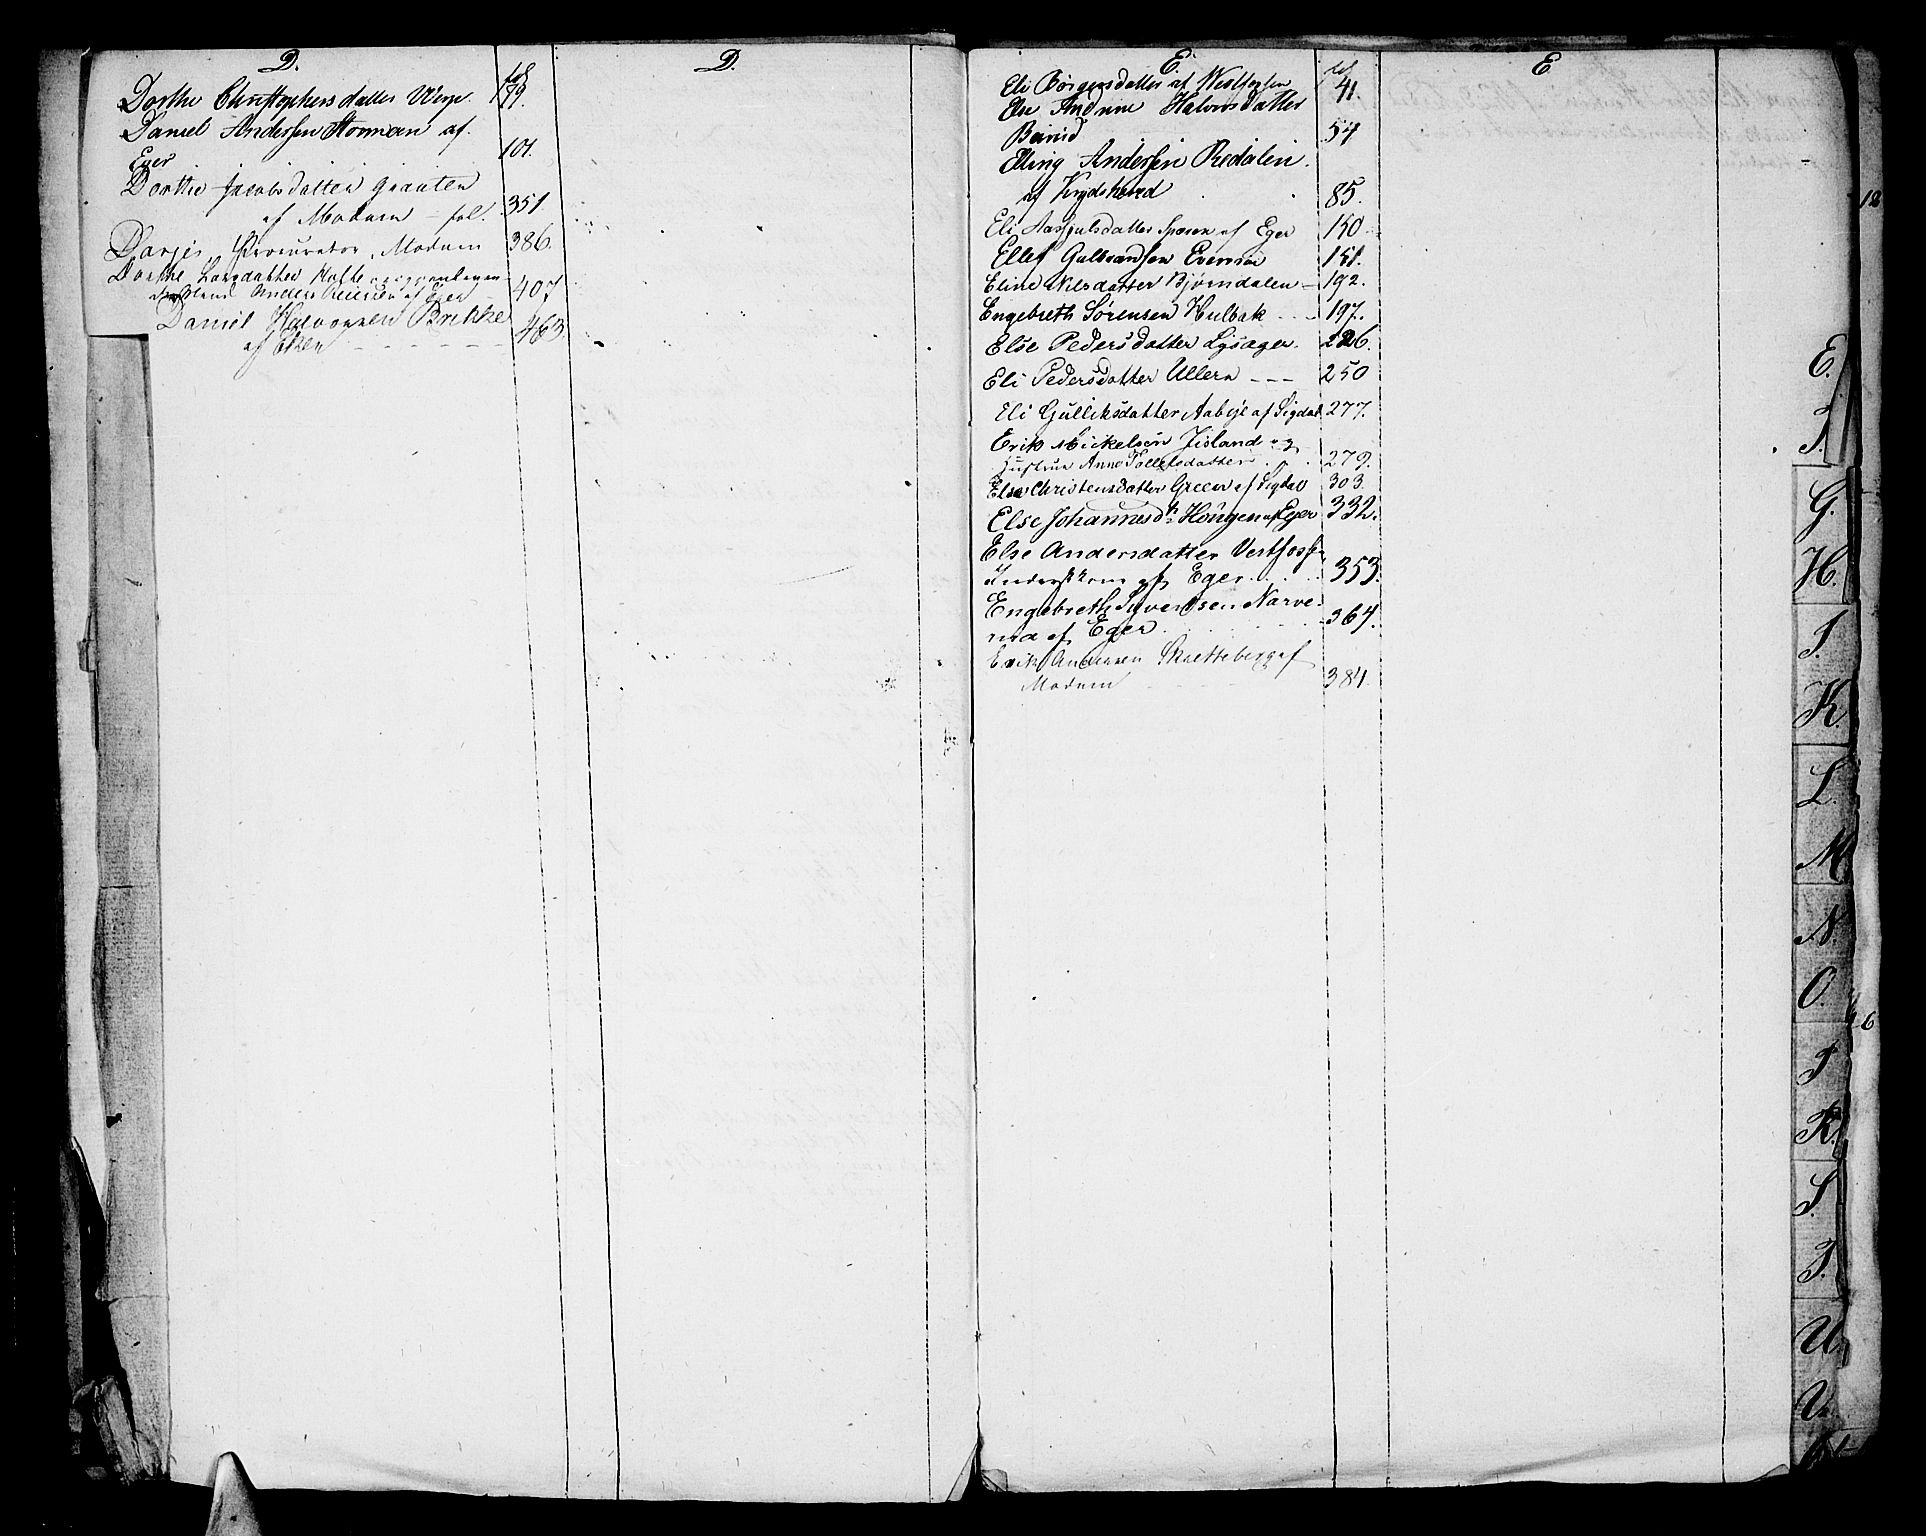 D.
fol
Dorthe Christophersdatter Werp. 179.
Daniel Andersen Stormoen af
Eger 101.
Dorthe Jacobsdatter Graaten
af Modum – fol. 351
Procurator, Modum 386.
Dorthe Larsdatter
Anders af Eger 407
Daniel Halvorsen Brekke
af Eker 463.
D.
E.
fol
Eli Børgersdatter af Westfossen 41.
Else Andrine Halvorsdatter
54
Elling Andersen Redalen
af Krydsherred 85.
Eli Aslqulsdatter af Eger 150
Ellef Gulbrandsen Evensen 151.
Eline Nilsdatter Bjørndalen – 192.
Engebreth Sørensen Hulbak 197.
Else Pedersdatter Lysager. 226.
Eli Pedersdatter Ullern --- 250
Eli Gulliksdatter Aabye af Sigdal 277.
Erik Mickelsen Jisland og
Hustrue Anne Tollefsdatter 279.
Else Christensdatter Green af Sigdal 303
Else Johannesdtr Hougen af Eger 332.
Else Andersdatter Vestfossen
af Eger 353.
Engebreth Syvertsen Narve-
rud af Eger 364.
Erik Andersen Skretteberg af
Modum 384.
E
12
E.
F.
G.
H.
I.
K.
L.
M.
N.
O.
P
R.
S.
T.
U.
V.
6